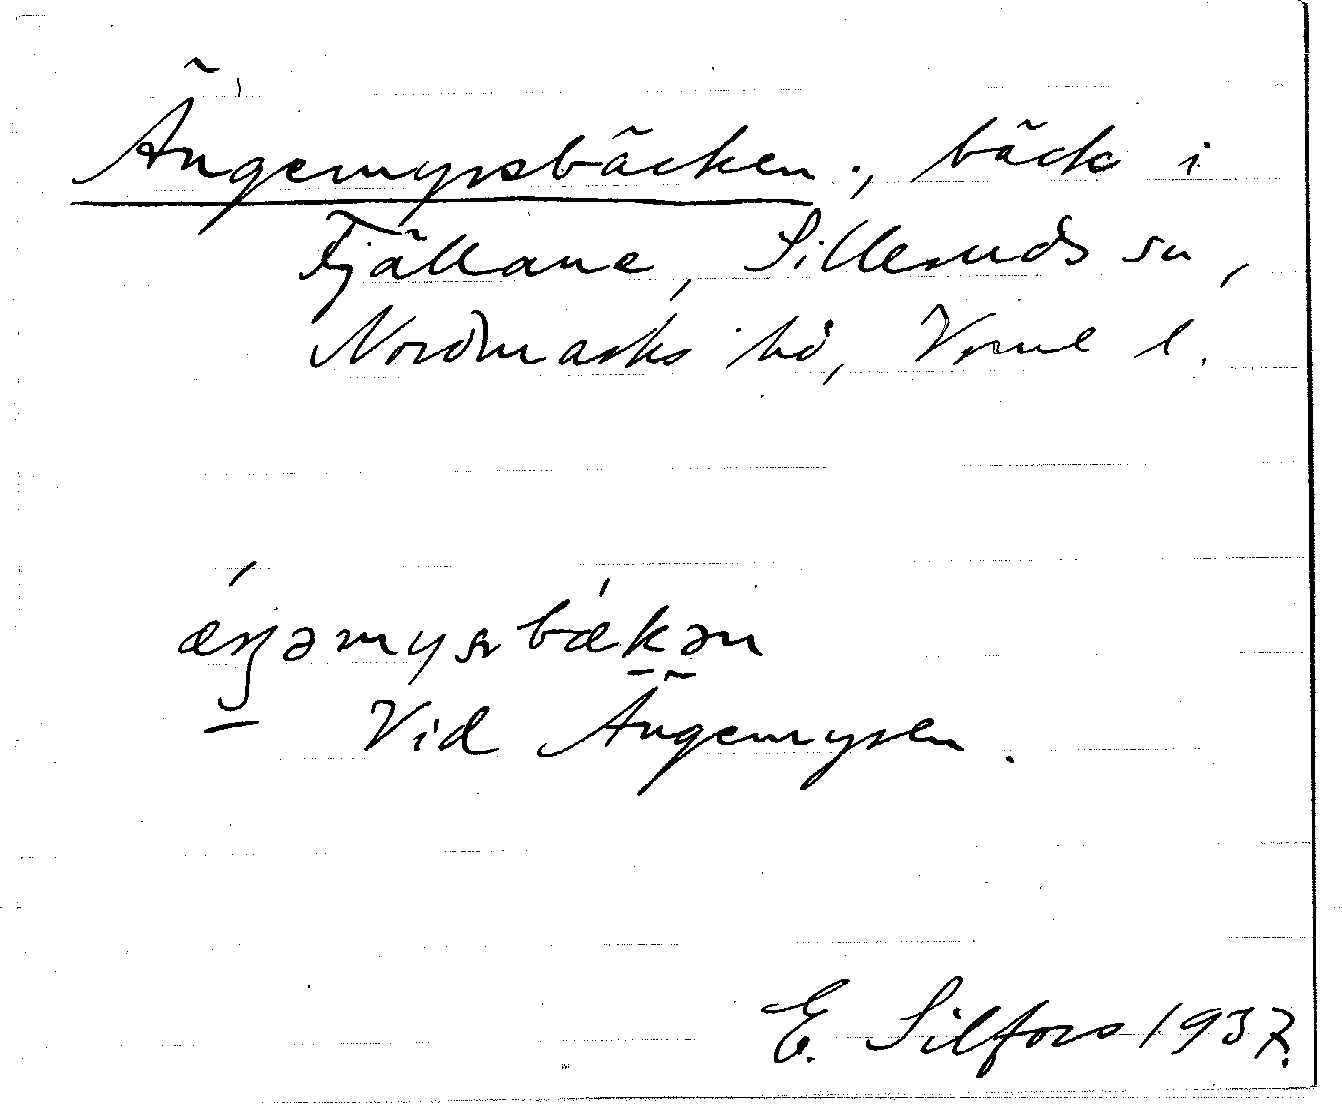 Ängemyrsbäcken, bäck i
Fjällane, Silleruds sn,
Nordmarks hd, Vrml l.
Vid Ängemyren.
E. Silfors 1937.